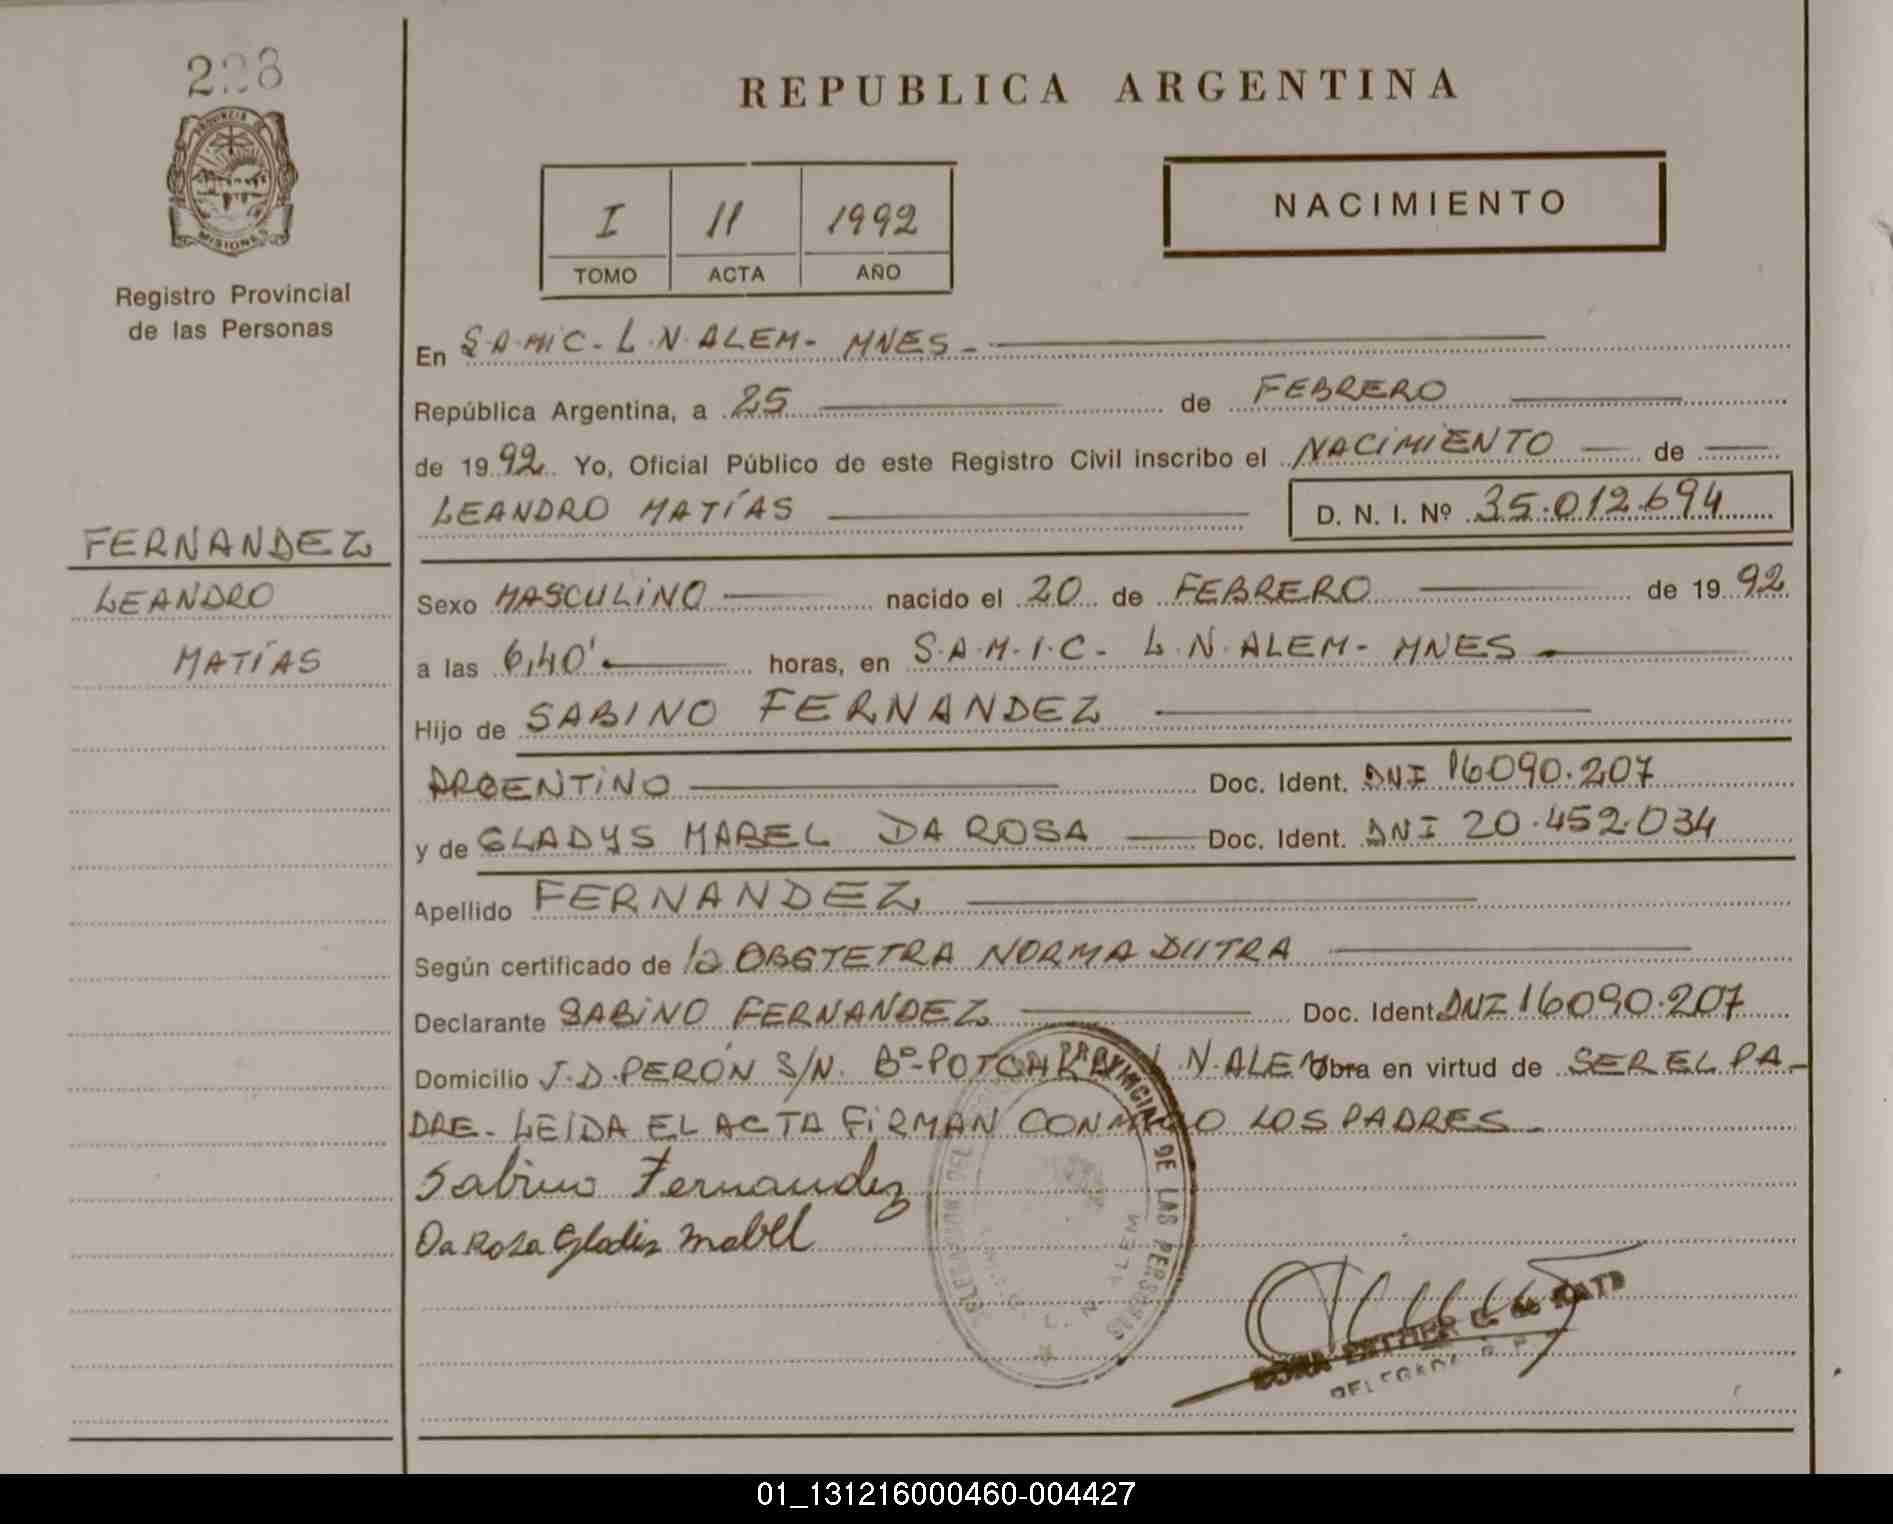 REPUBLICA ARGENTINA
PROVINCIA DE
MISIONES
Registro Provincial
de las Personas
I 11 1992
TOMO ACTA AÑO
NACIMIENTO
En S.A.MIC. L.N.ALEM- MNES-
República Argentina, a 25 de FEBRERO
de 1992. Yo, Oficial Público de este Registro Civil inscribo el NACIMIENTO de
LEANDRO MATÍAS D. N. I. Nº 35.012.694
FERNANDEZ
LEANDRO
MATÍAS
Sexo MASCULINO nacido el 20 de FEBRERO de 1992.
a las 6,40' horas, en S.A.M.I.C- L.N.ALEM- MNES
Hijo de SABINO FERNANDEZ
ARGENTINO Doc. Ident. DNI 16090.207
y de GLADYS MABEL DA ROSA Doc. Ident. DNI 20.452.034
Apellido FERNANDEZ
Según certificado de la OBSTETRA NORMA DUTRA
Declarante SABINO FERNANDEZ Doc. Ident. DNI 16090.207
Domicilio J.D.PERÓN S/N. Bº-L.N.ALEM Obra en virtud de SER EL PA-
DRE- LEIDA EL ACTA FIRMAN CONMIGO LOS PADRES-
Sabino Fernandez
Da Rosa Gladis Mabel
PROVINCIAL DE LAS PERSONAS
ALEM
DELEGADA
01_131216000460-004427